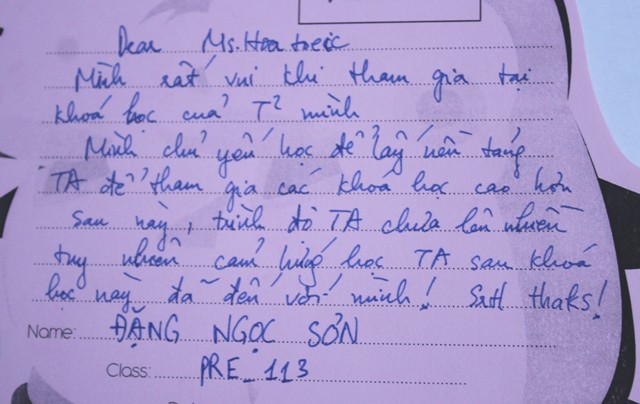 Dear Ms. Hoa toeic
Mình rất vui khi tham gia tại
khoá học của T² mình
Mình chủ yếu học để lấy nền tảng
TA để tham gia các khoá học cao hơn
sau này, trình độ TA chưa lên nhiều
tuy nhiên cảm hứng học TA sau khoá
học này đã đến với mình! thaks!
Name: ĐẶNG NGỌC SƠN
Class: PRE_113